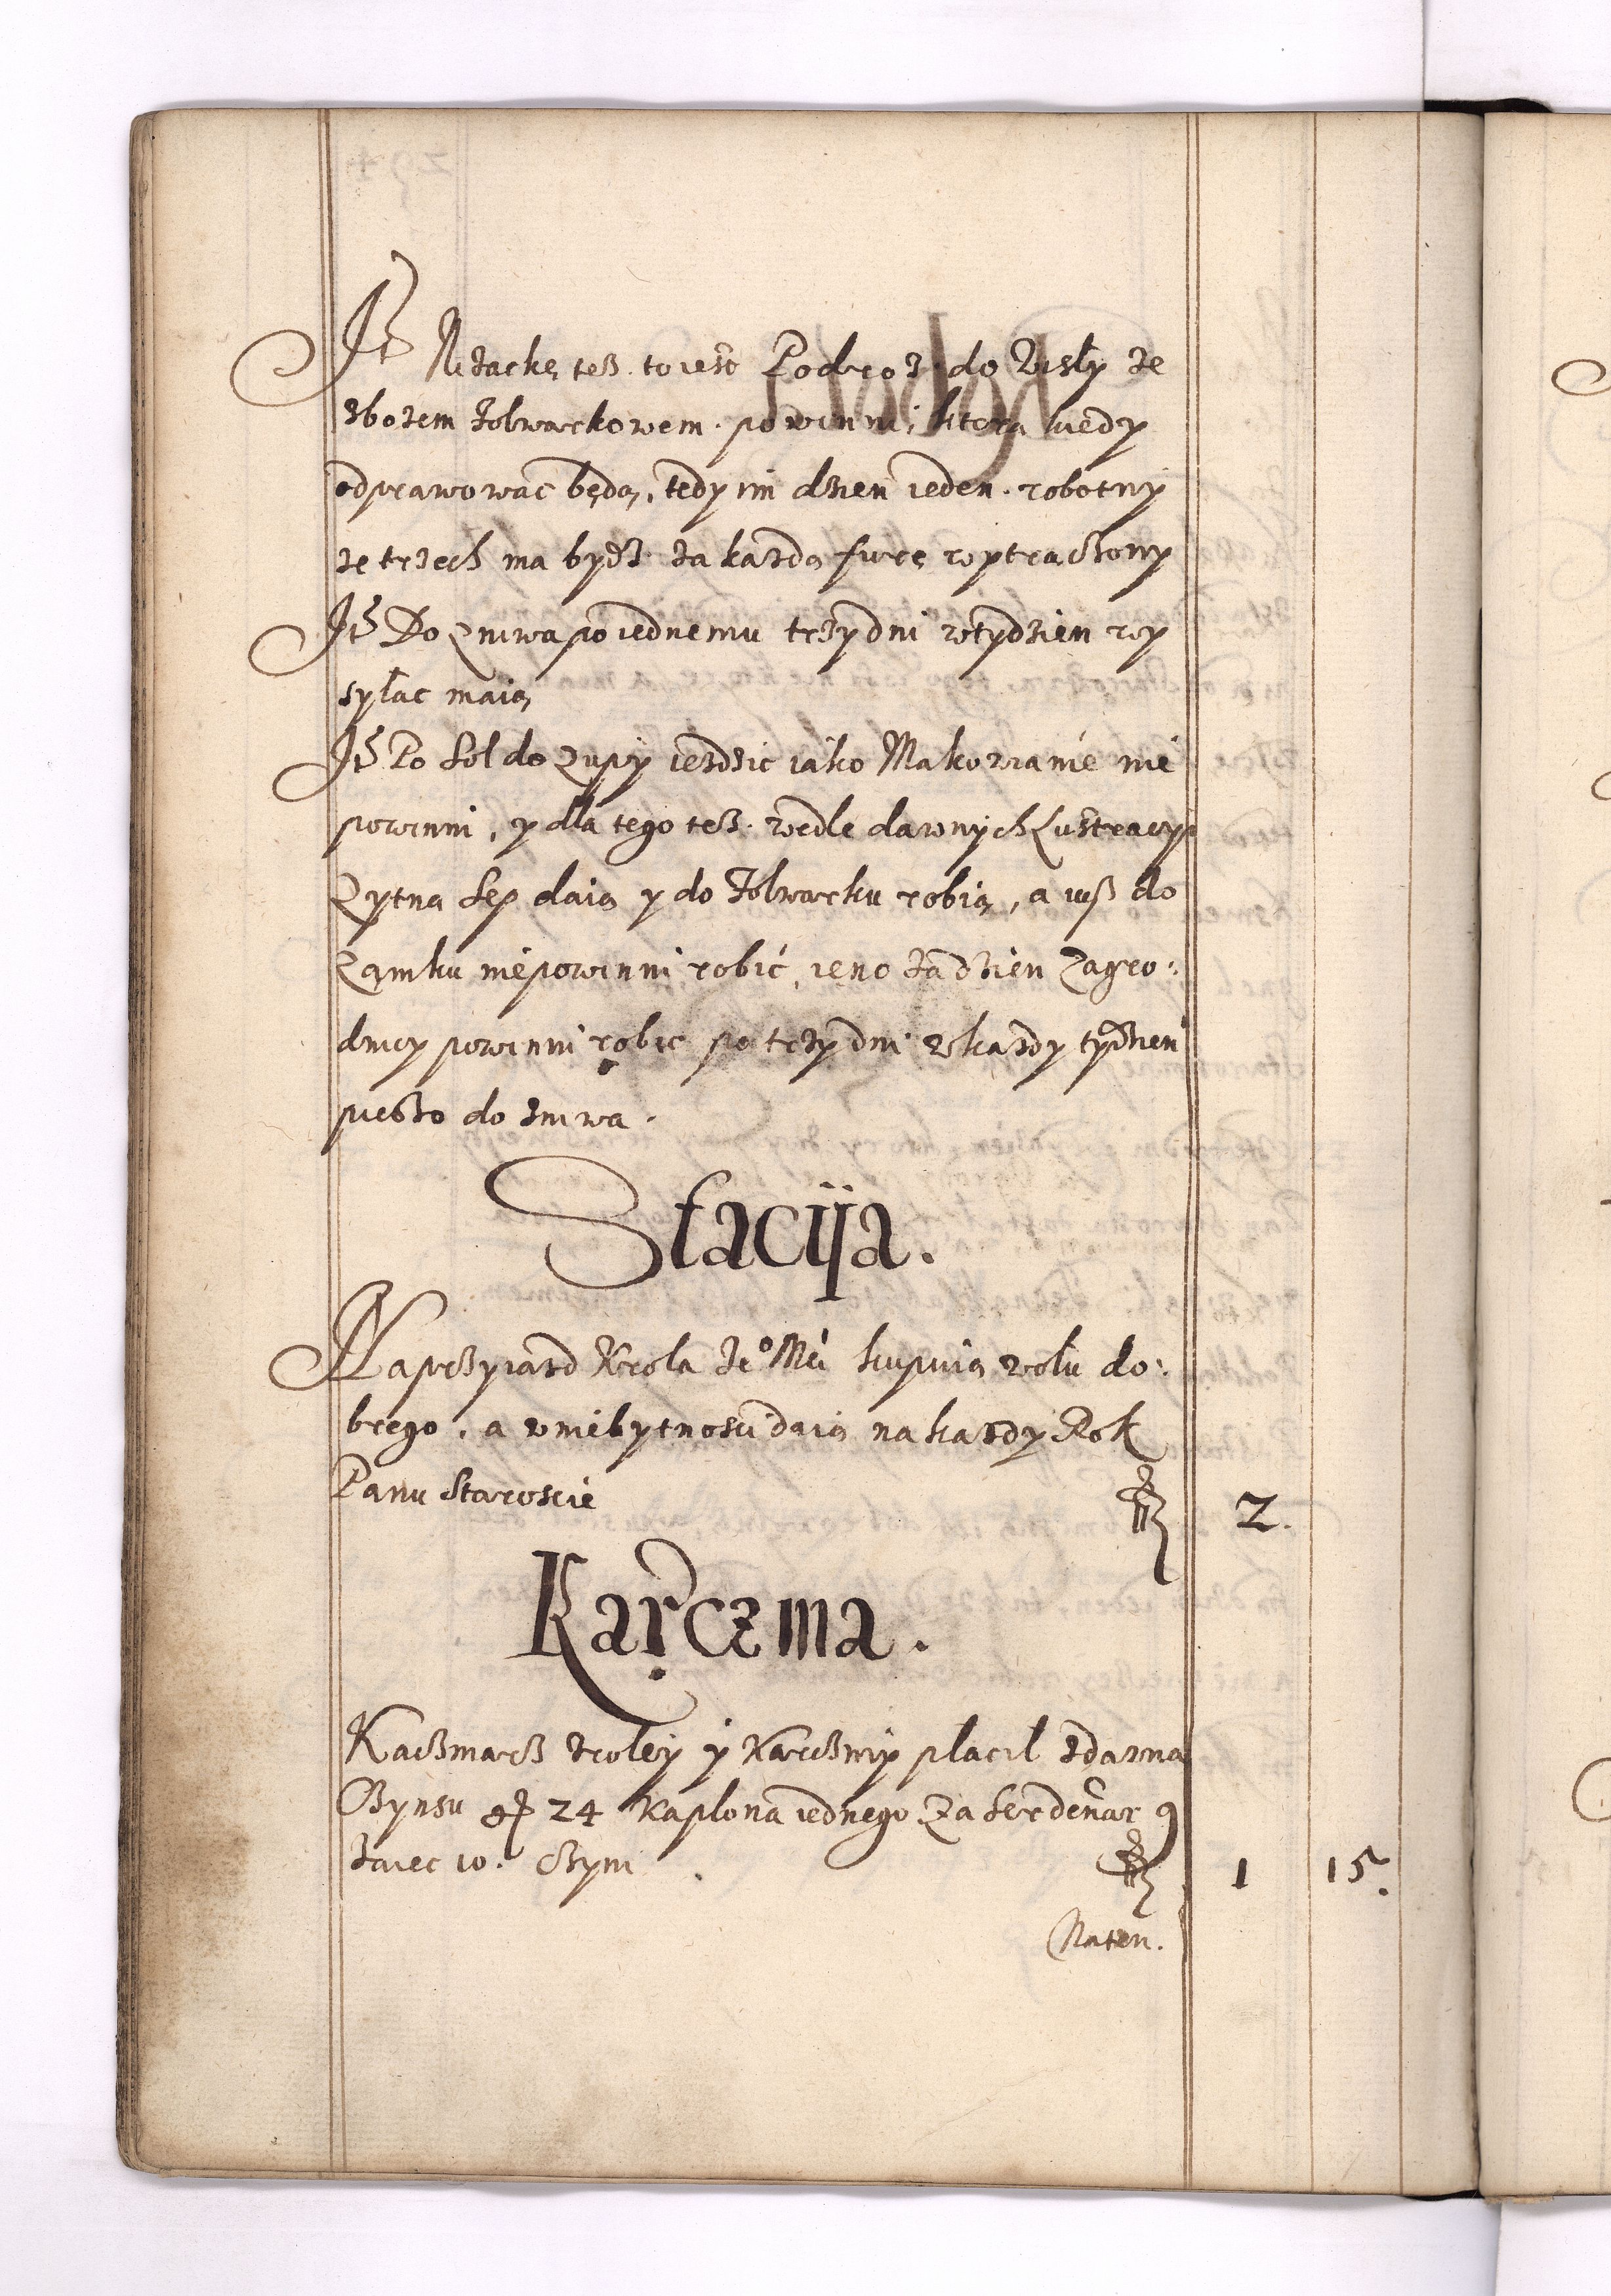 It Niedackę tesz. to iest Podroz do Wisly ze
zbozem folwarkowem. powinni, ktorą kiedy
odprawowac będą, tedy im dzien ieden. robotny
ze trzech ma bydz. za kazdą furę wytrączony
It Do Zniwa po iednemu trzy dni w tydzien wy
syłac maią
It Po Sol do Zupy iezdzic iako Makowianie nie
powinni, y dla tego tesz. wedle dawnych Lustracyi
Zytna Sep daią y do Folwarku robią, a iusz do
Zamku nie powinni robić, ieno za dzien Zagro:
dnicy powinni robic po trzy dni w kazdy tydzien
pieszo do zniwa.
Stacija.
Na przyiazd Krola Je° Mći kupuią wołu do:
brego, a w niebytnosci daią na kazdy Rok
Panu Staroscie
2.
Karczma.
Kaczmarz z roley y Karczmy placil zdawna
Czynsu gr 24 Kaplona iednego Za Ser denar 9
Jaiec 10. Czyni
1 15.
Naten.